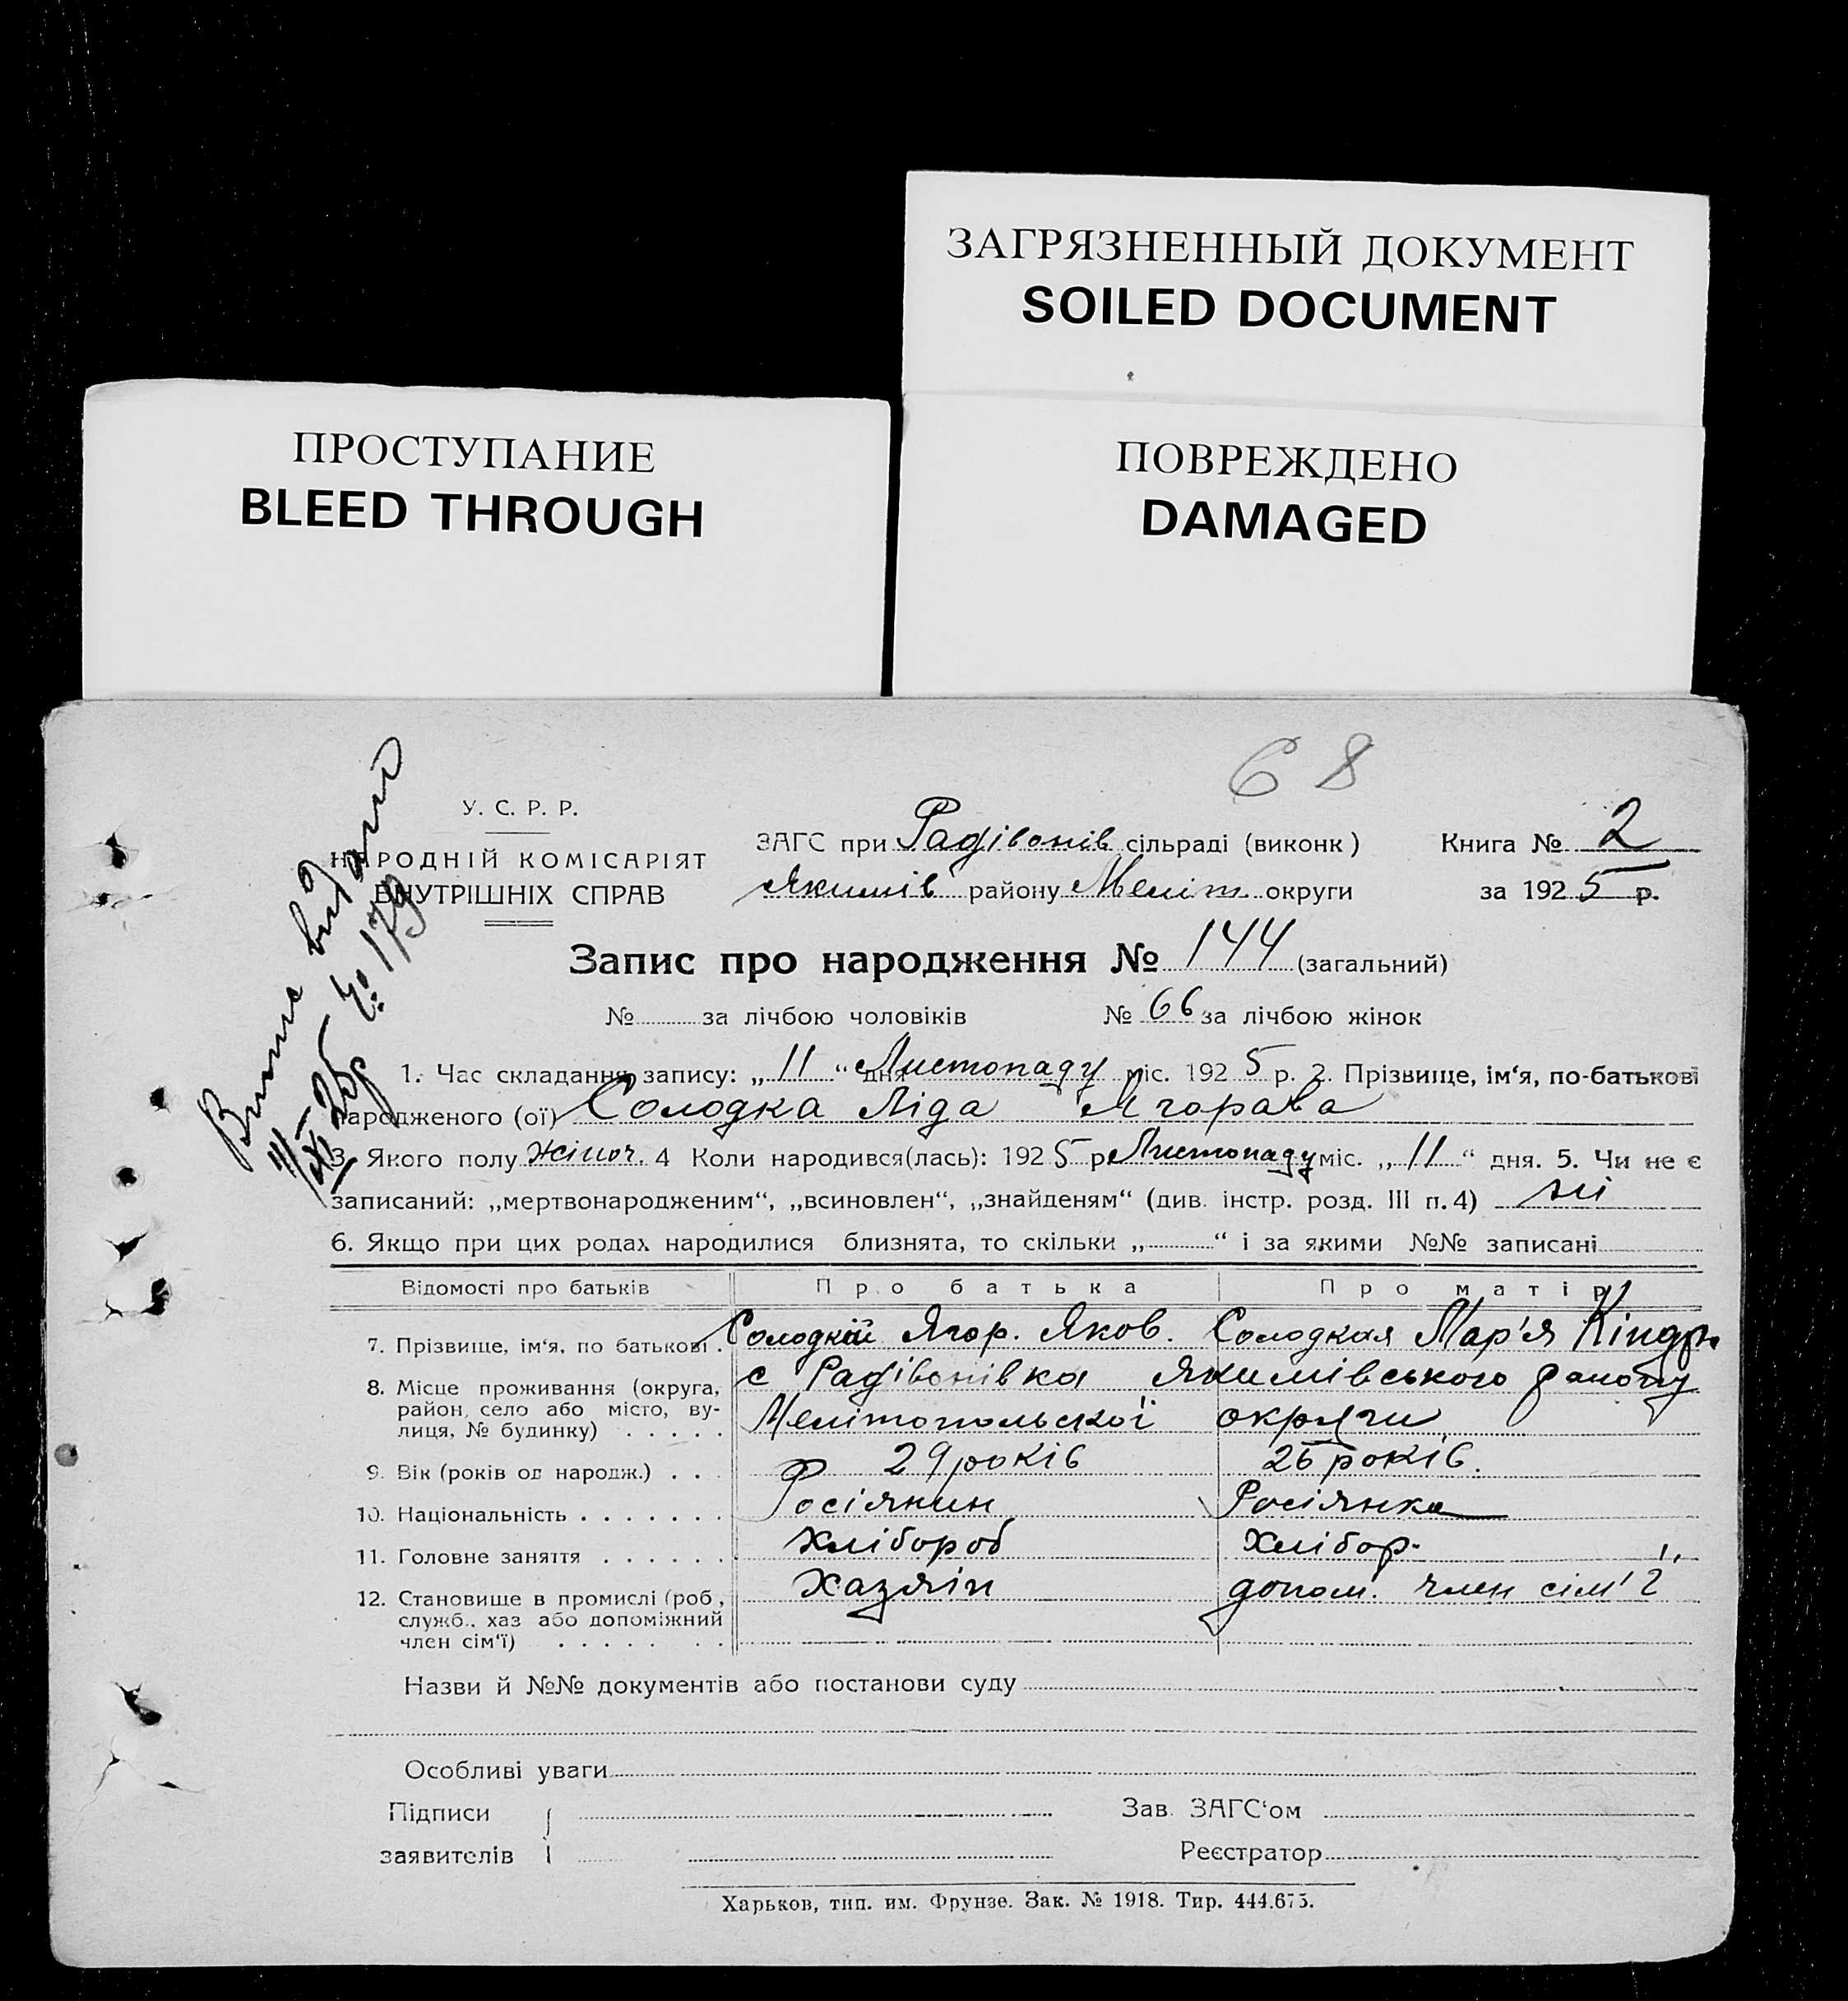 ЗАГРЯЗНЕННЫЙ ДОКУМЕНТ
SOILED DOCUMENT
ПРОСТУПАНИЕ
BLEED THROUGH
ПОВРЕЖДЕНО
DAMAGED
68
У. С. Р. Р.
НАРОДНІЙ КОМІСАРІЯТ
ВНУТРІШНІХ СПРАВ
ЗАГС при Радівонів сільраді (виконк)
Книга № 2
Якимів району Меліт округи
за 1925 р.
виданий
№ 179
Запис про народження № 144 (загальний)
№ за лічбою чоловіків № 66 за лічбою жінок
1. Час складання запису: „11“ дня Листопаду міс. 1925 р. 2. Прізвище, ім‘я, по-батькові
народженого (ої) Солодка Ліда Ягорава
3. Якого полу жіноч. 4 Коли народився(лась): 1925 р Листопаду міс. „11“ дня. 5. Чи не є
записаний: „мертвонародженим“, „всиновлен“, „знайденям“ (див. інстр. розд. III п. 4) ні
6. Якщо при цих родах народилися близнята, то скільки „ “ і за якими №№ записані
Відомості про батьків Про батька Про матір
7. Прізвище, ім‘я, по батькові. Солодкій Ягор. Яков. Солодкая Мар'я Кіндр
8. Місце проживання (округа, район, село або місто, вулиця, № будинку) с Радівонівка Якимівського району
Мелітопольської округи
9. Вік (років од народж.) 29 років 25 років.
10. Національність Росіянин Росіянка
11. Головне заняття Хлібороб Хлібор.
12. Становище в промислі (роб, служб., хаз або допоміжний член сім‘ї) Хазяін допом. член сім'ї
Назви й №№ документів або постанови суду
Особливі уваги
Підписи
заявителів
Зав. ЗАГС‘ом
Реєстратор
Харьков, тип. им. Фрунзе. Зак. № 1918. Тир. 444.675.